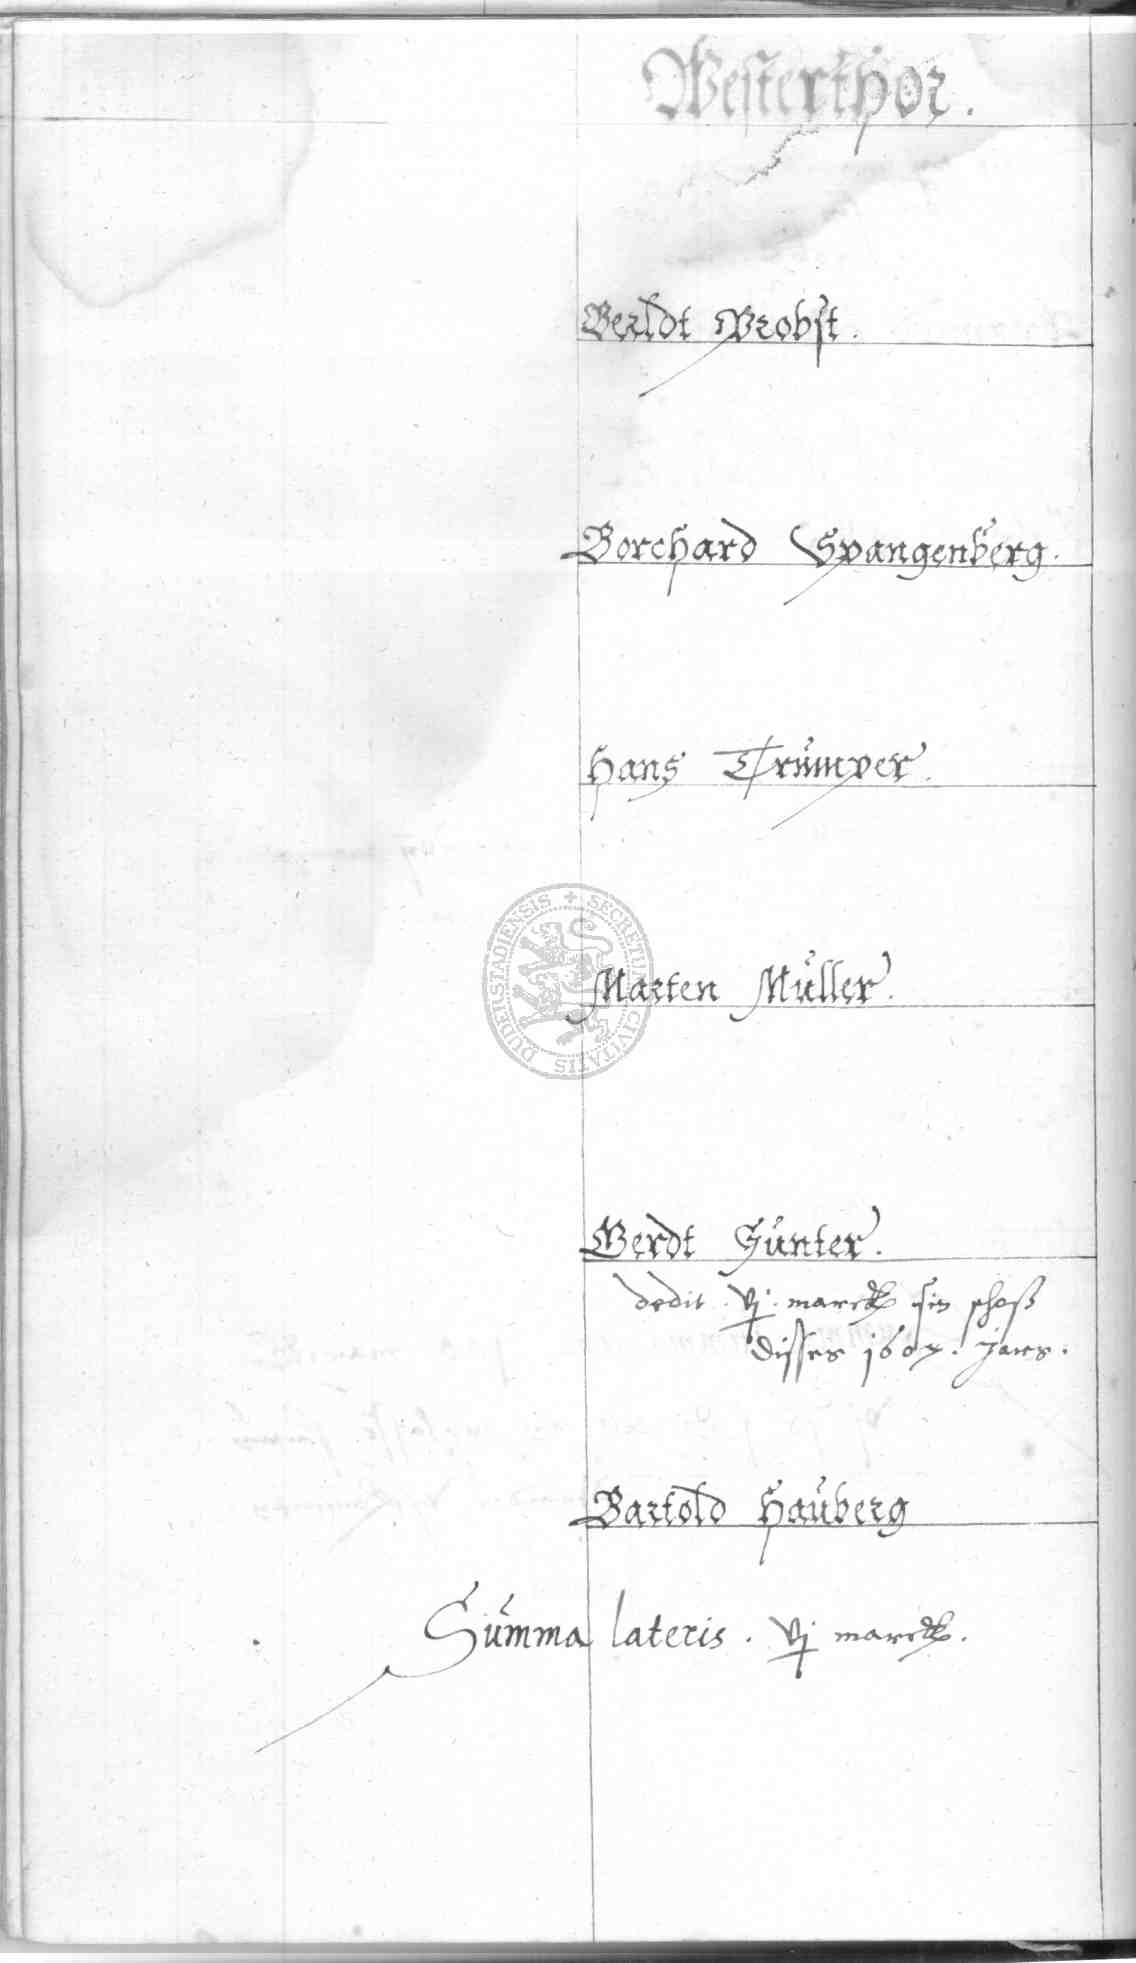 Westerthor.
Berldt Probst.
Borchard Spangenberg.
Hans Trümper.
DUDERSTADIENSIS + SECRETUM CIVITATIS
Marten Müller.
Berdt Günter.
dedit vj marck sin schoß
disses 1607. Jars.
Bartold Hauberg
Summa lateris. vj marck.